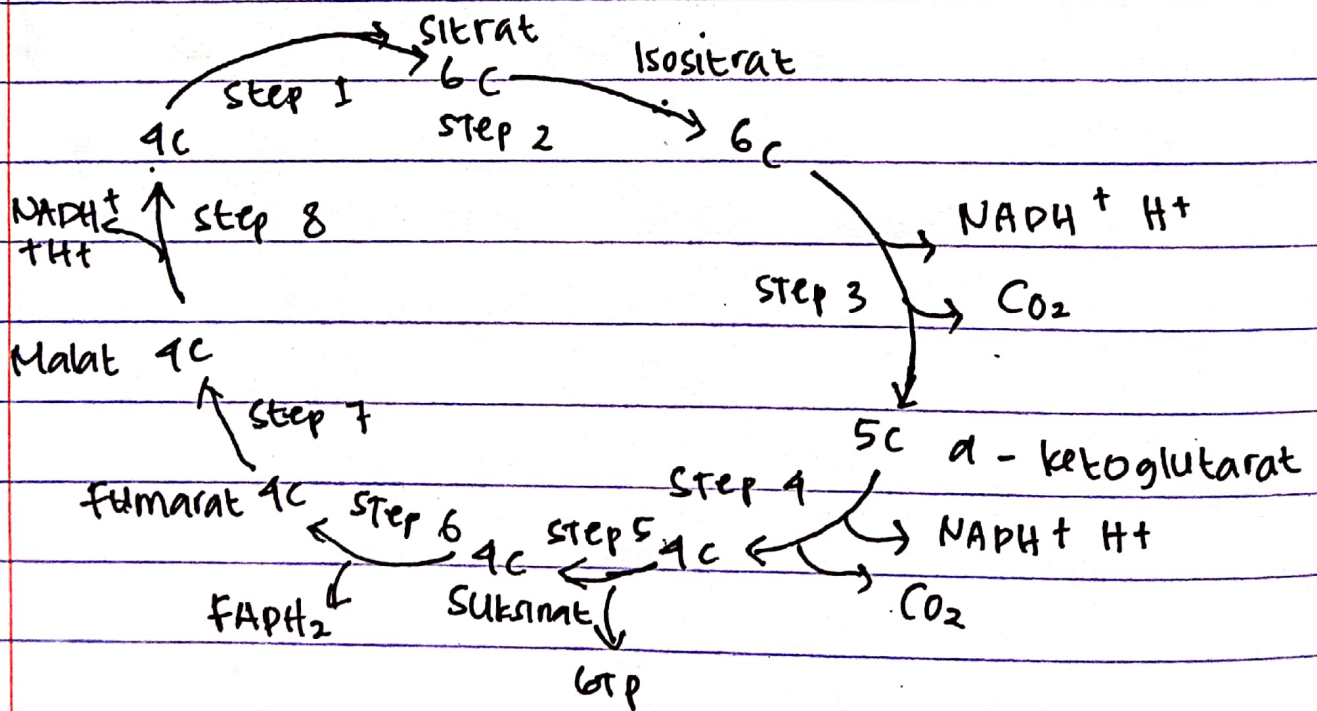 Sitrat
Isositrat
Step 1
6C
Step 2
6C
4C
NADH+
+H+
Step 8
NADH + H+
Step 3
CO2
Malat 4C
Step 7
5C α - ketoglutarat
Step 4
Fumarat 4C
Step 6
Step 5
4C
4C
NADH + H+
Suksinat
CO2
FADH2
GTP